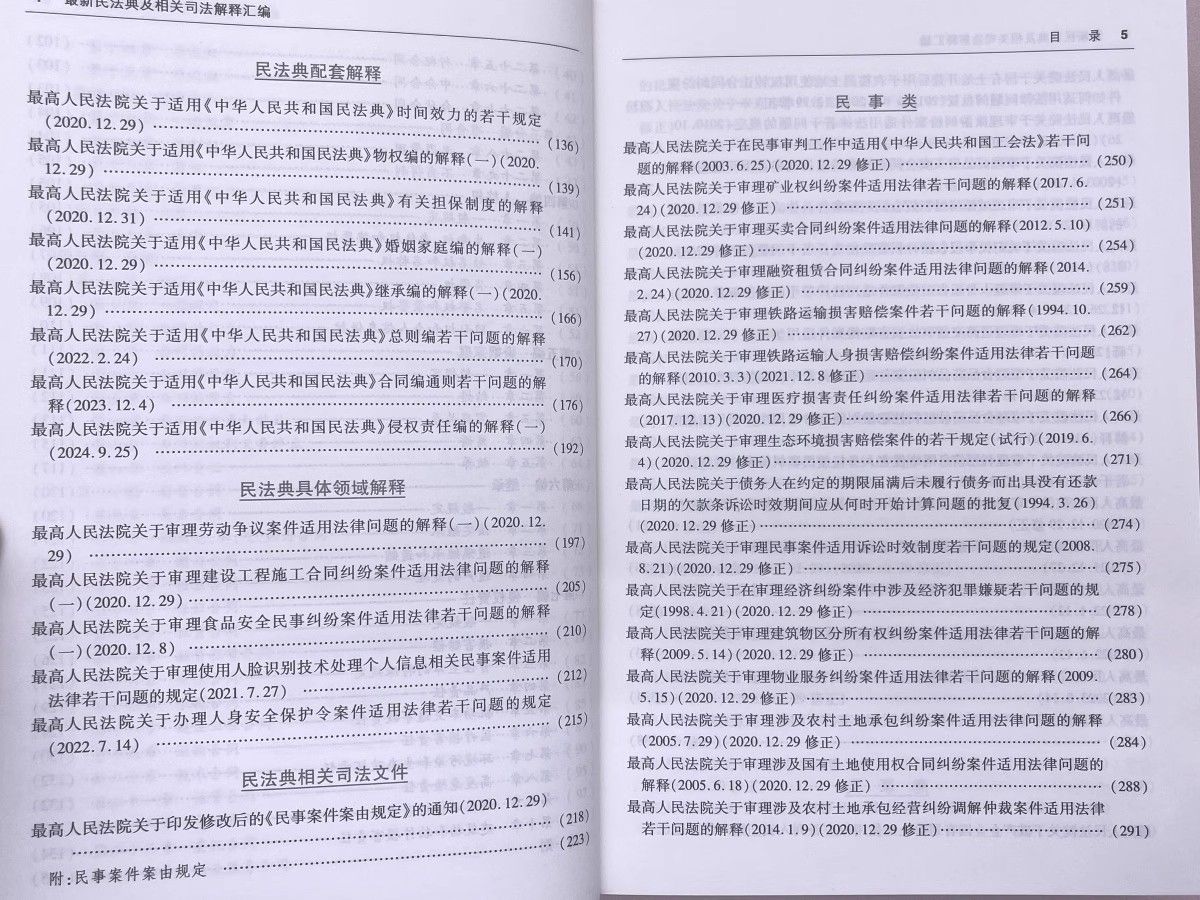 最新民法典及相关司法解释汇编
民法典配套解释
最高人民法院关于适用《中华人民共和国民法典》时间效力的若干规定
(2020.12.29) …… (136)
最高人民法院关于适用《中华人民共和国民法典》物权编的解释(一)(2020.
12.29) …… (139)
最高人民法院关于适用《中华人民共和国民法典》有关担保制度的解释
(2020.12.31) …… (141)
最高人民法院关于适用《中华人民共和国民法典》婚姻家庭编的解释(一)
(2020.12.29) …… (156)
最高人民法院关于适用《中华人民共和国民法典》继承编的解释(一)(2020.
12.29) …… (166)
最高人民法院关于适用《中华人民共和国民法典》总则编若干问题的解释
(2022.2.24) …… (170)
最高人民法院关于适用《中华人民共和国民法典》合同编通则若干问题的解
释(2023.12.4) …… (176)
最高人民法院关于适用《中华人民共和国民法典》侵权责任编的解释(一)
(2024.9.25) …… (192)
民法典具体领域解释
最高人民法院关于审理劳动争议案件适用法律问题的解释(一)(2020.12.
29) …… (197)
最高人民法院关于审理建设工程施工合同纠纷案件适用法律问题的解释
(一)(2020.12.29) …… (205)
最高人民法院关于审理食品安全民事纠纷案件适用法律若干问题的解释
(一)(2020.12.8) …… (210)
最高人民法院关于审理使用人脸识别技术处理个人信息相关民事案件适用
法律若干问题的规定(2021.7.27) …… (212)
最高人民法院关于办理人身安全保护令案件适用法律若干问题的规定
(2022.7.14) …… (215)
民法典相关司法文件
最高人民法院关于印发修改后的《民事案件案由规定》的通知(2020.12.29)
…… (218)
附:民事案件案由规定 …… (223)
目 录 5
民 事 类
最高人民法院关于在民事审判工作中适用《中华人民共和国工会法》若干问
题的解释(2003.6.25)(2020.12.29修正) …… (250)
最高人民法院关于审理矿业权纠纷案件适用法律若干问题的解释(2017.6.
24)(2020.12.29修正) …… (251)
最高人民法院关于审理买卖合同纠纷案件适用法律问题的解释(2012.5.10)
(2020.12.29修正) …… (254)
最高人民法院关于审理融资租赁合同纠纷案件适用法律问题的解释(2014.
2.24)(2020.12.29修正) …… (259)
最高人民法院关于审理铁路运输损害赔偿案件若干问题的解释(1994.10.
27)(2020.12.29修正) …… (262)
最高人民法院关于审理铁路运输人身损害赔偿纠纷案件适用法律若干问题
的解释(2010.3.3)(2021.12.8修正) …… (264)
最高人民法院关于审理医疗损害责任纠纷案件适用法律若干问题的解释
(2017.12.13)(2020.12.29修正) …… (266)
最高人民法院关于审理生态环境损害赔偿案件的若干规定(试行)(2019.6.
4)(2020.12.29修正) …… (271)
最高人民法院关于债务人在约定的期限届满后未履行债务而出具没有还款
日期的欠款条诉讼时效期间应从何时开始计算问题的批复(1994.3.26)
(2020.12.29修正) …… (274)
最高人民法院关于审理民事案件适用诉讼时效制度若干问题的规定(2008.
8.21)(2020.12.29修正) …… (275)
最高人民法院关于在审理经济纠纷案件中涉及经济犯罪嫌疑若干问题的规
定(1998.4.21)(2020.12.29修正) …… (278)
最高人民法院关于审理建筑物区分所有权纠纷案件适用法律若干问题的解
释(2009.5.14)(2020.12.29修正) …… (280)
最高人民法院关于审理物业服务纠纷案件适用法律若干问题的解释(2009.
5.15)(2020.12.29修正) …… (283)
最高人民法院关于审理涉及农村土地承包纠纷案件适用法律问题的解释
(2005.7.29)(2020.12.29修正) …… (284)
最高人民法院关于审理涉及国有土地使用权合同纠纷案件适用法律问题的
解释(2005.6.18)(2020.12.29修正) …… (288)
最高人民法院关于审理涉及农村土地承包经营纠纷调解仲裁案件适用法律
若干问题的解释(2014.1.9)(2020.12.29修正) …… (291)